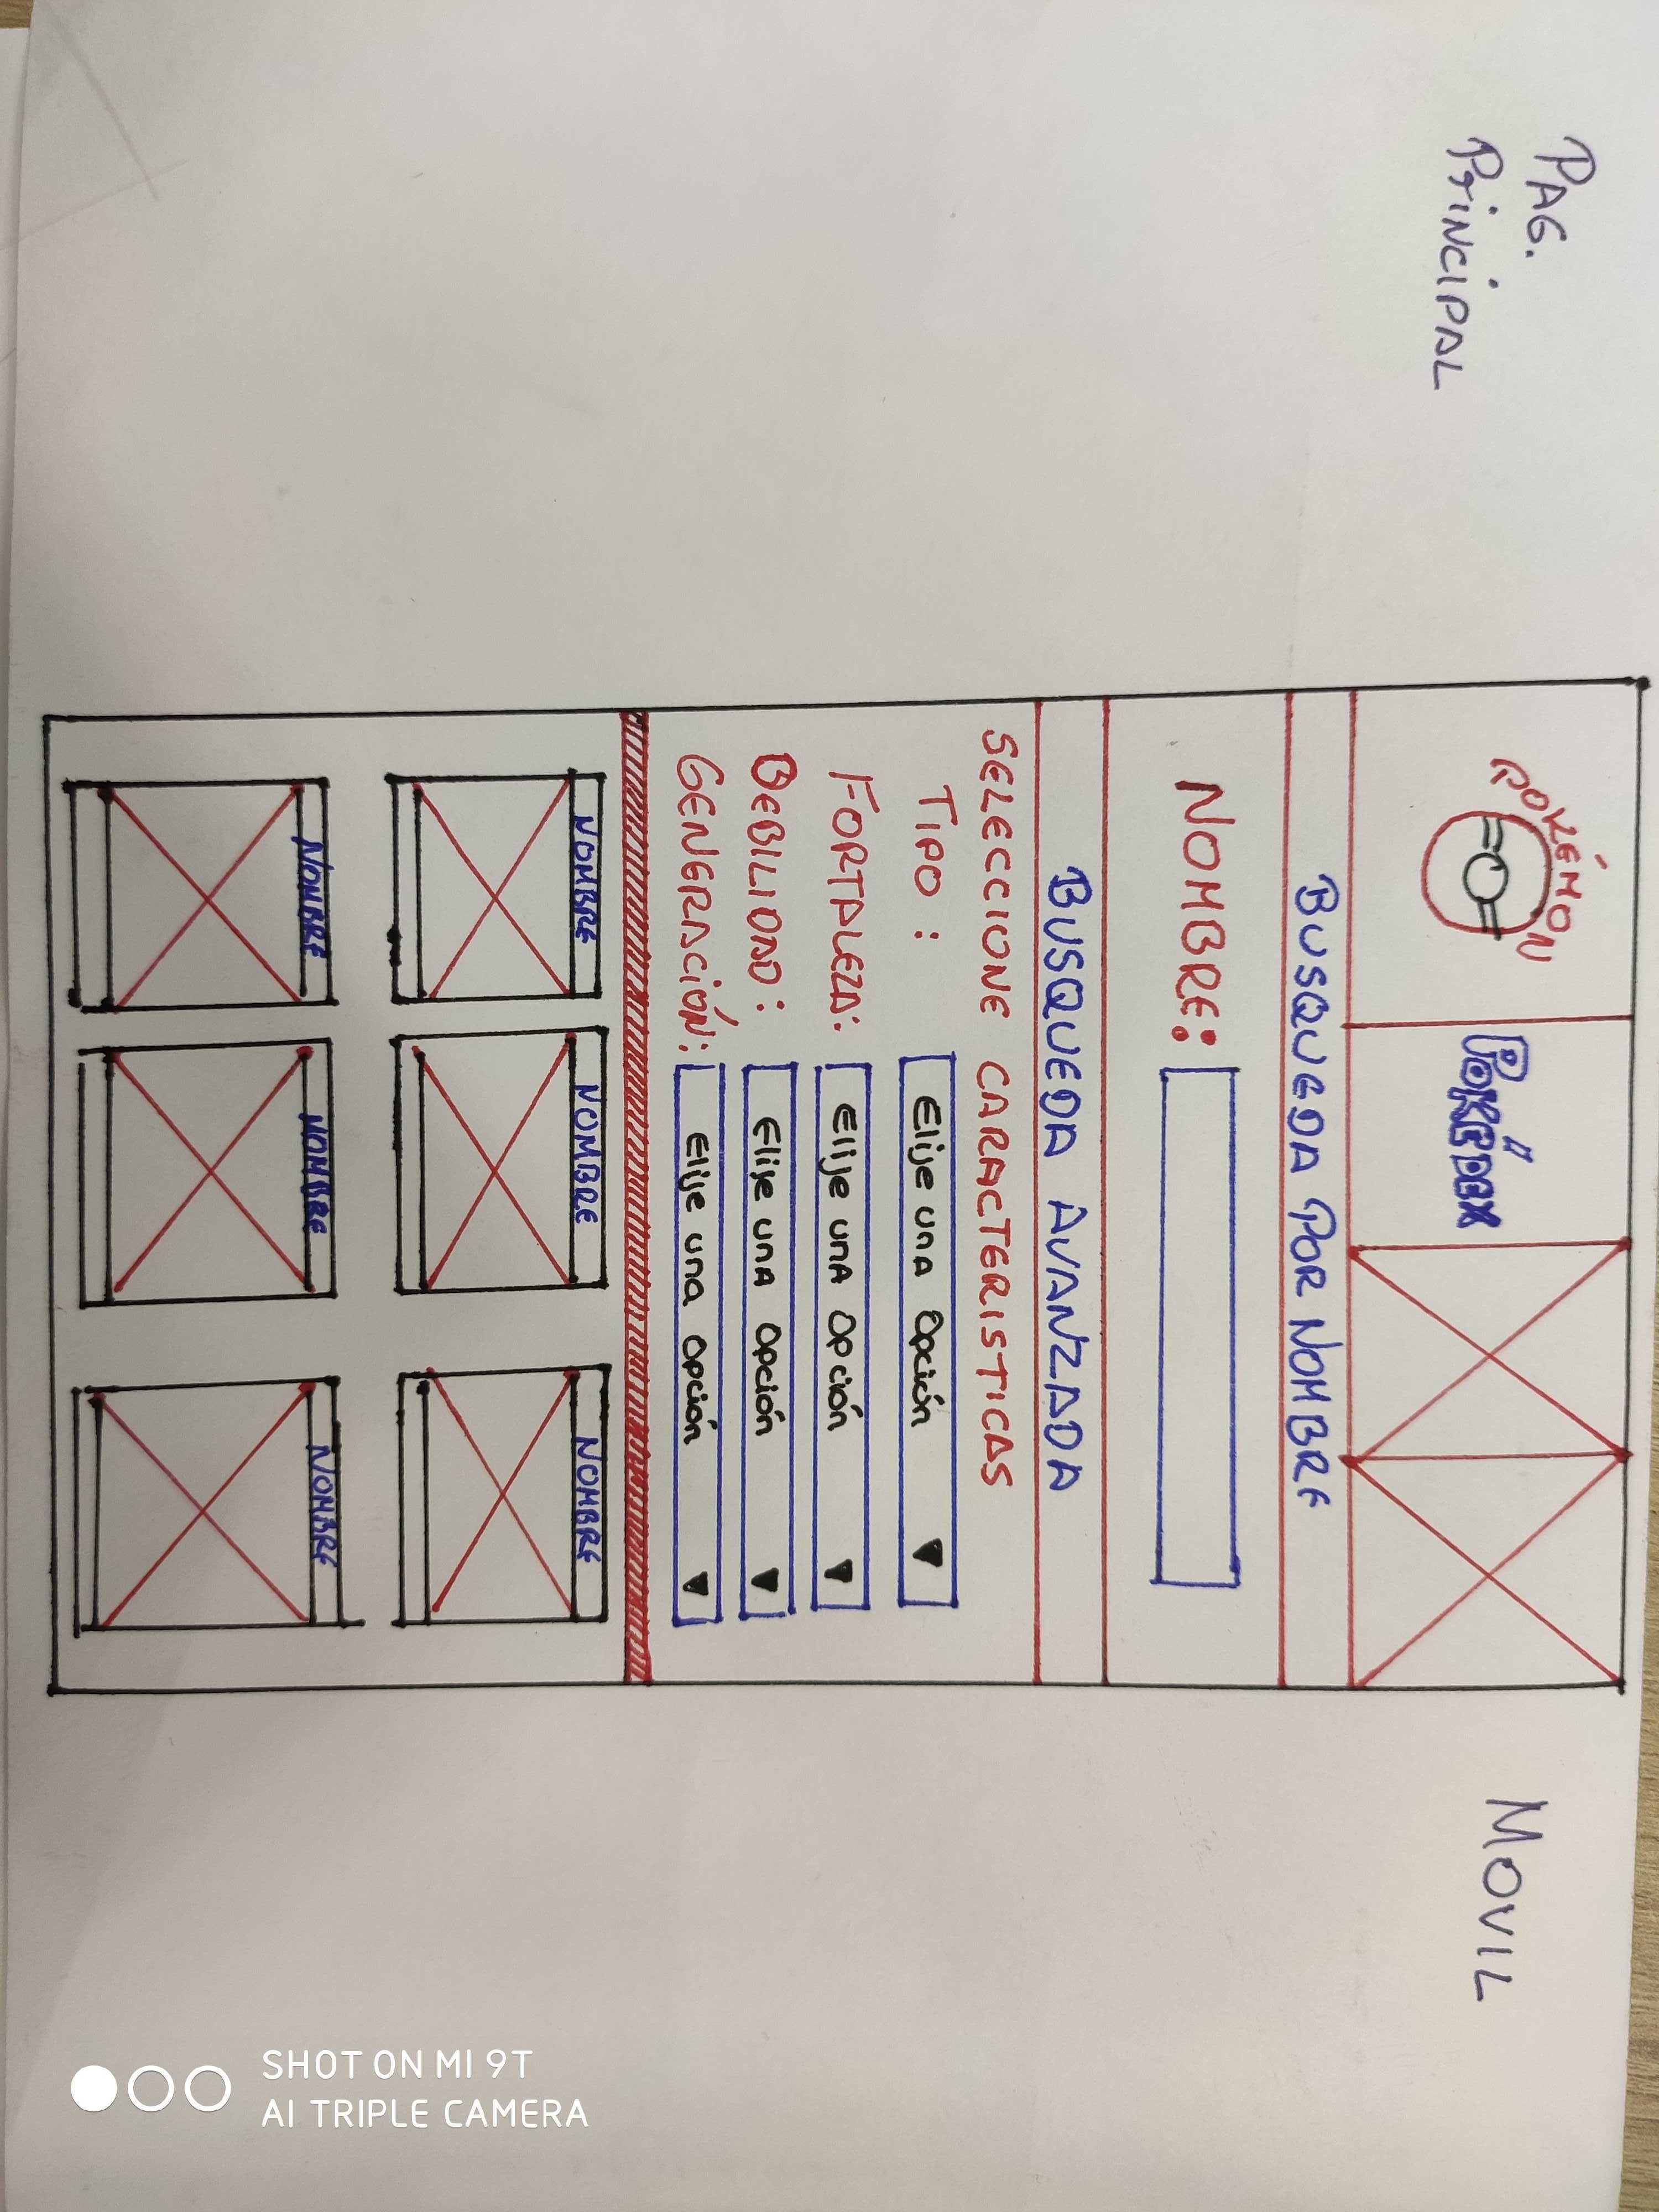 PAG.
PrinCIPAL
MOVIL
POKÉMON
POKÉDEX
BUSQUEDA POR NOMBRE
NOMBRE:
BUSQUEDA AVANZADA
SELECCIONE CARACTERISTICAS
TIPO : Elije una Opción ▼
FORTALEZA: Elije una Opción ▼
DEBILIDAD: Elije una Opción ▼
GENERACIÓN: Elije una Opción ▼
NOMBRE NOMBRE NOMBRE
NOMBRE NOMBRE NOMBRE
SHOT ON MI 9T
AI TRIPLE CAMERA